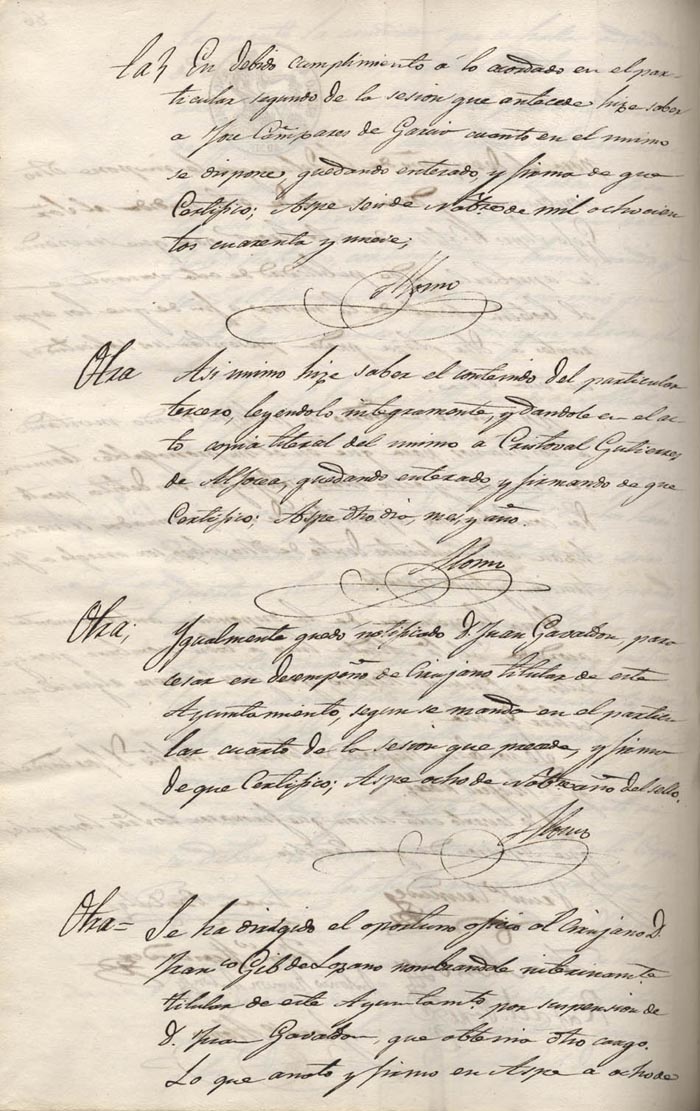 En debido cumplimiento á lo acordado en el par-
ticular segundo de la sesion que antecede hize saber
a Jose Cañizares de Garcia cuanto en el mismo
se dispone, quedando enterado, y firma de que
Certifico; Aspe seis de Nobre de mil ochocien
tos cuarenta y nueve;
Otra Asi mismo hize saber el contenido del particular
tercero, leyendolo integramente, y dandole en el ac-
to copia literal del mismo a Cristoval Gutierrez
de Alforea, quedando enterado, y firmando de que
Certifico; Aspe dho dia, mes, y año.
Otra; Ygualmente quedo notificado D. Juan Gavaldon, para
cesar en desempeño de Cirujano titular de este
Ayuntamiento, segun se manda en el particu-
lar cuarto de la sesion que precede, y firma
de que Certifico; Aspe ocho de Nobre año del sello.
Otra= Se ha dirigido el oportuno oficio al Cirujano D.
Franco Gil de Lozano nombrandole interinamte
titular de este Ayuntamto por suspension de
D. Juan Gavaldon, que obtenia dho cargo.
Lo que anoto y firmo en Aspe a ocho de